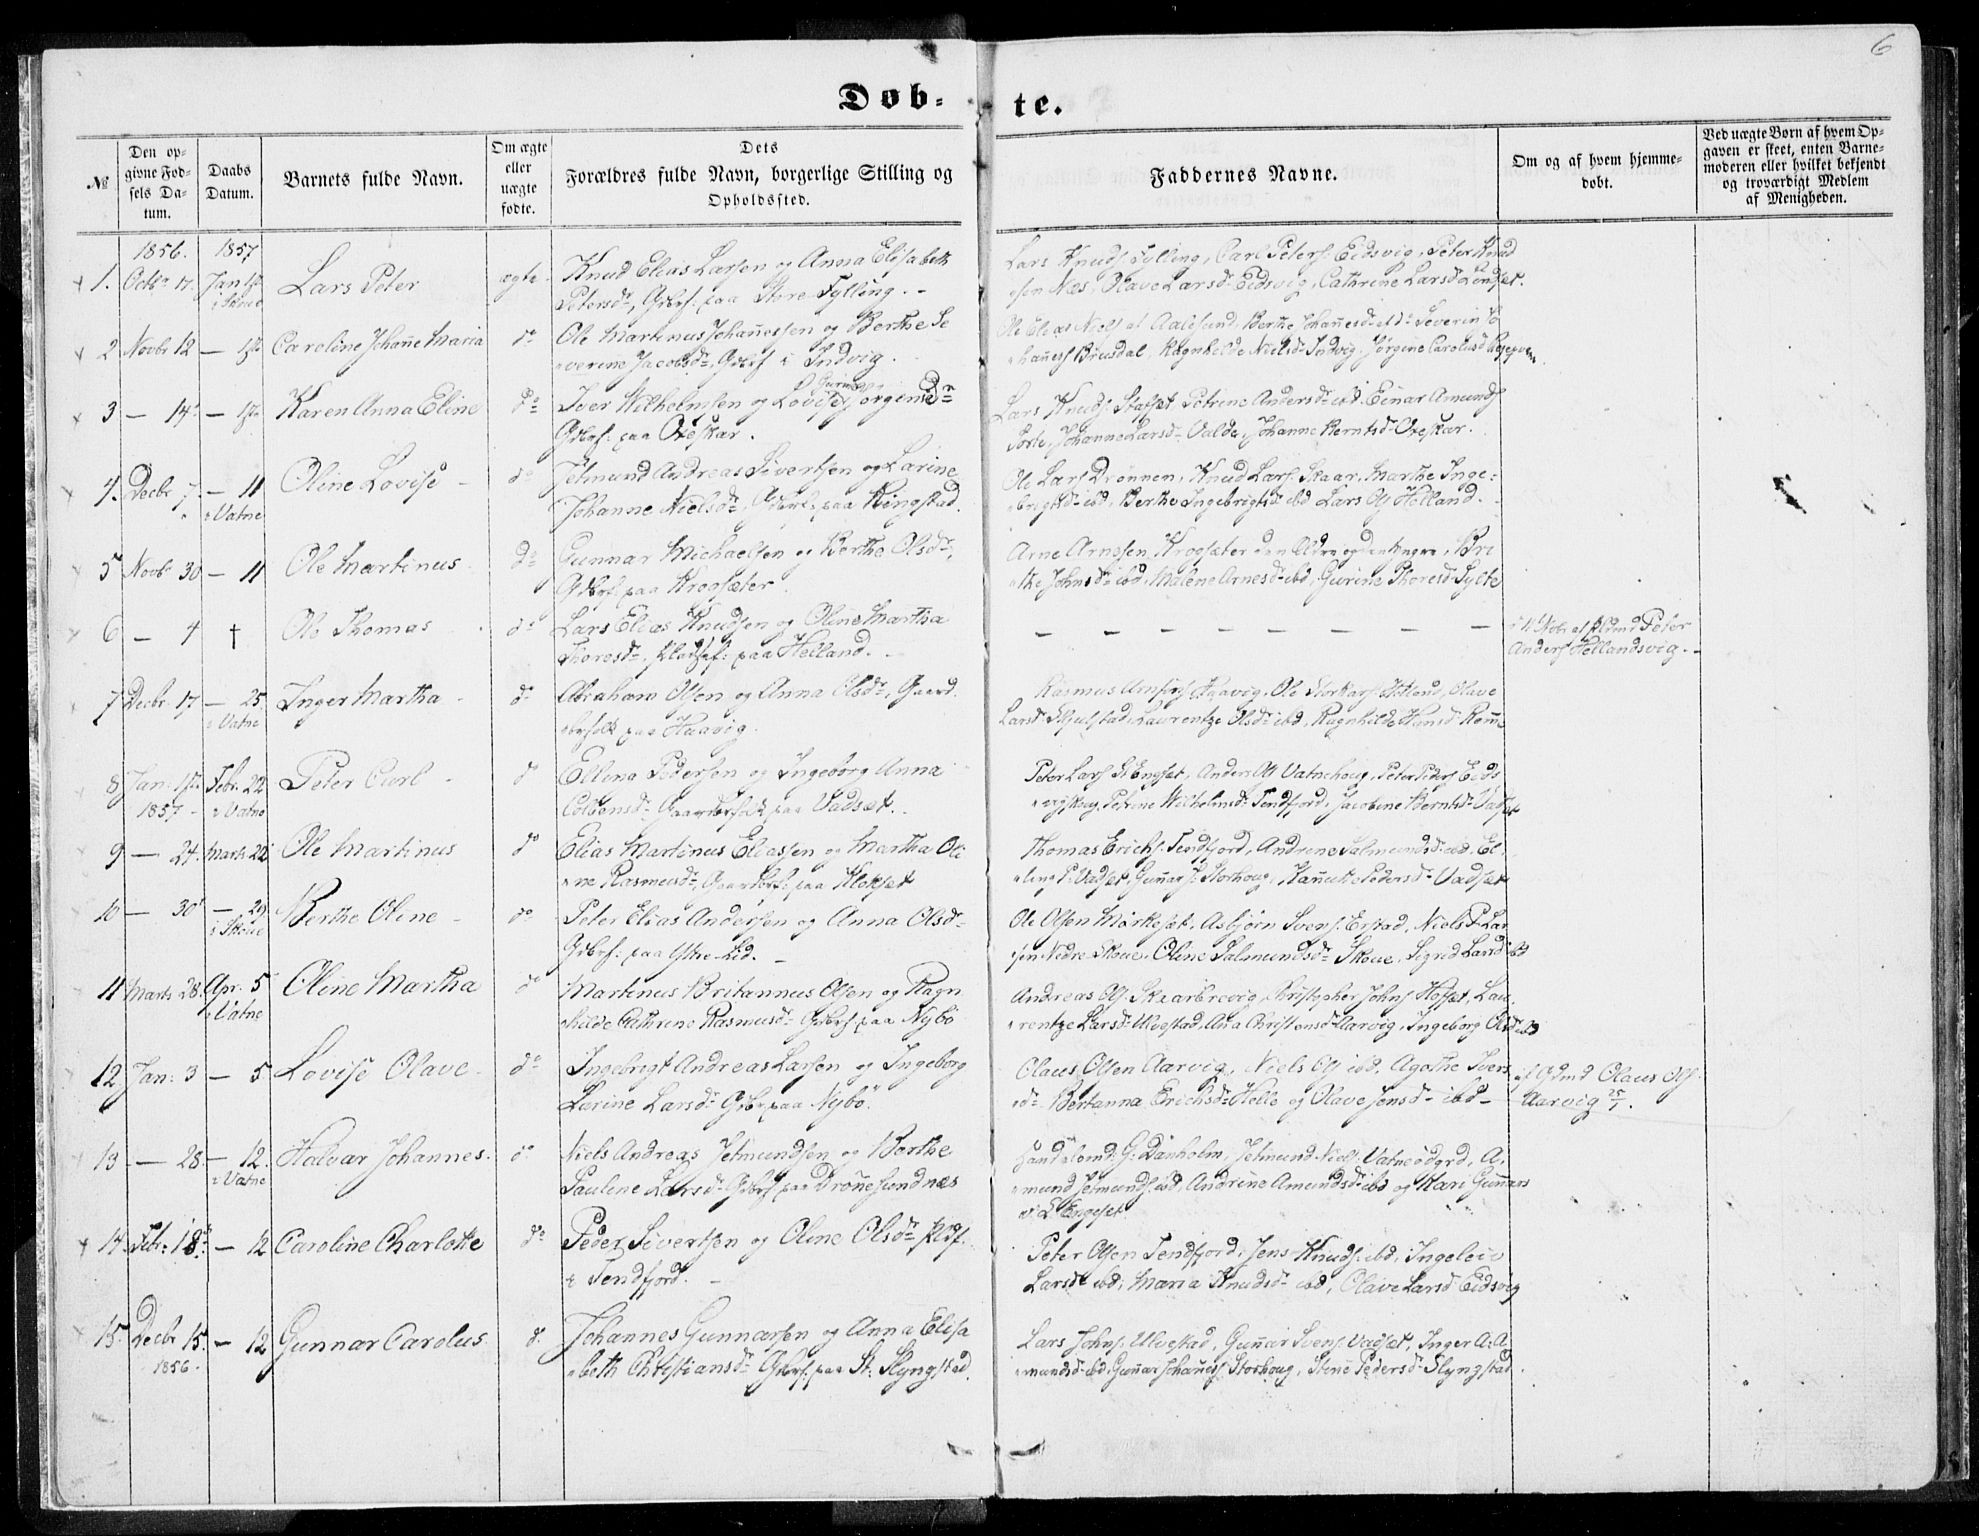 6
Døb-
te.
№
Den op-
givne Fød-
sels Da-
tum.
Daabs
Datum.
Barnets fulde Navn.
Om ægte
eller
uægte
fødte.
Dets
Forældres fulde Navn, borgerlige Stilling og
Opholdssted.
Faddernes Navne.
Om og af hvem hjemme-
døbt.
Ved uægte Børn af hvem Op-
gaven er skeet, enten Barne-
moderen eller hvilket bekjendt
og troværdigt Medlem
af Menigheden.
1856. 1857
1. Octbr 17. Jan 1ste Lars Peter ægte. Knud Elias Larsen og Anna Elisabeth
Petersdr, Gdbrf: paa Store Tylling.
Lars Knuds: Tylling, Carl Peters: Eidsvig, Peter Knud
sen Næs, Olave Larsd: Eidsvig, Cathrine Larsd
2 Novbr 12 — 1ste Caroline Johañe Maria do Ole Martinus Johañessen og Berthe Se
verine Jacobsdr, Gdbrf: i Indvig.
Ole Elias Niels: af Aalesund, Berthe Johañesd: ibd: Severin Jo
hañess Brusdal, Ragnhilde Nielsd: Indvig, Jørgine Carolusd
3 — 14. — 1ste Karen Anna Eline do Iver Wilhelmsen og Lovise Jørgine
Gdbrf: paa Oxeskar.
Lars Knuds: Petrine Andersd: ibd: Einar Amunds
Johanne Larsd: Valde, Johanne Berntsd: Oxeskar.
4. Decbr 7. — 11 Oline Lovise do Jetmund Andreas Sivertsen og Larine
i Vatne Johanne Nielsdr, Gdbrf: paa Ringstad.
Ole Lars Drønnen, Knud Lars: Skaar, Marthe Inge-
brigtsd: ibd, Berthe Ingebrigtsd: ibd Lars Ols Helland.
5 Novbr 30 — 11 Ole Martinus do Gunnar Michaelsen og Berthe Olsdr,
Gdbrf: paa Krogsæter.
Arne Arnssen Krogsæter den Ældre og den Yngre, Bri
the Johnsd: ibd, Malene Arnesd: ibd, Gurine Thoresd: Sylte
6 — 4 † Ole Thomas do Lars Elias Knudsen og Oline Martha
Thoresdr, Pladsf: paa Helland.
— — — — — — — —
Peter
Anders Hellandsvig.
7 Decbr. 17 — 25 Inger Martha do Abraham Olsen og Anna Olsdr, Gaard
i Vatne brfolk paa Haavig.
Rasmus Haavig, Ole Helland, Olave
Larsd: Skjelstad, Laurentze Olsd: ibd, Ragnhilde Hansd: Rønne
8 Jan: 17. Febr. 22 Peter Carl do Ellend Pedersen og Ingeborg Anna
1857 i Vatne Colbensdr Gaardbrfolk paa Vadset.
Peter Lars St Engset, Anders Ols Vatnehoug, Peter Peders Eids
vigskoug, Petrine Wilhelmsd: Tendfjord, Jacobine Berntsd: Vadset
9 — 24. Marts 22 Ole Martinus do Elias Martinus Eliassen og Martha Oli
ne Rasmusdr, Gaardbrf: paa Klokset
Thomas Erichs: Tendfjord, Andrine Salmundsd: ibd, El
ling P: Vadset, Guñar J: Storhoug, Pedersd: Vadset
10 — 30 — 29 Berthe Oline do Peter Elias Andersen og Anna Olsdr
i Skoue Gdbrf: paa Yttre Lid.
Ole Olsen Mørkeset, Asbjørn Svens: Erstad, Niels P. Lar
sen Nedre Skoue, Oline Salmundsdr Skoue, Sigrid Larsd ibd
11 Marts 28. Apr. 5 Oline Martha do Martinus Britannus Olsen og Ragn
i Vatne hilde Cathrine Rasmusdr Gdbrf: paa Nybø
Andreas Ols Skaarbrevig, Christopher Johns Hofset, Lau
rentze Larsd: Ulvestad, Aña Christensd: Aarvig, Ingeborg Olsd: ibd
12 Jan: 3 — 5 Lovise Olave do Ingebrigt Andreas Larsen og Ingeborg
Larine Larsdr Gdbr: paa Nybø.
Olaus Olsen Aarvig, Niels Ols ibd, Agathe Ivers
dr Bertanna Erichsdr Helle og Olave Jensdr ibd
af Gdmd Olaus Ols:
Aarvig 25/1.
13 — 28 — 12. Halvar Johannes do Niels Andreas Jetmundsen og Berthe
i Vatne Pauline Larsdr Gdbrf: paa Drønesundnæs
G: Danholm, Jetmund Niels: Vatneødgrd, A
mund Jetmunds: ibd, Andrine Amundsd: ibd og Kari Guñars
d: L Engeset
14 Febr: 18 — 12 Caroline Charlotte do Peder Sivertsen og Oline Olsdr Pldsf:
i Tendfjord.
Peter Olsen Tendfjord, Jens Knuds: ibd, Ingeleiv
Larsdr ibd, Maria Knudsdr ibd, Olave Larsd Eidsvig
15. Decbr 15. — 12 Gunnar Carolus do Johannes Gunnarsen og Anna Elisa
1856. beth Christiansdr Gdbrf: paa St: Slyngstad.
Lars Johns: Ulvestad, Guñar Svens: Vadset, Inger A: A
mundsd ibd, Guñar Johañess Storhoug, Stine Pedersd Slyngstad.